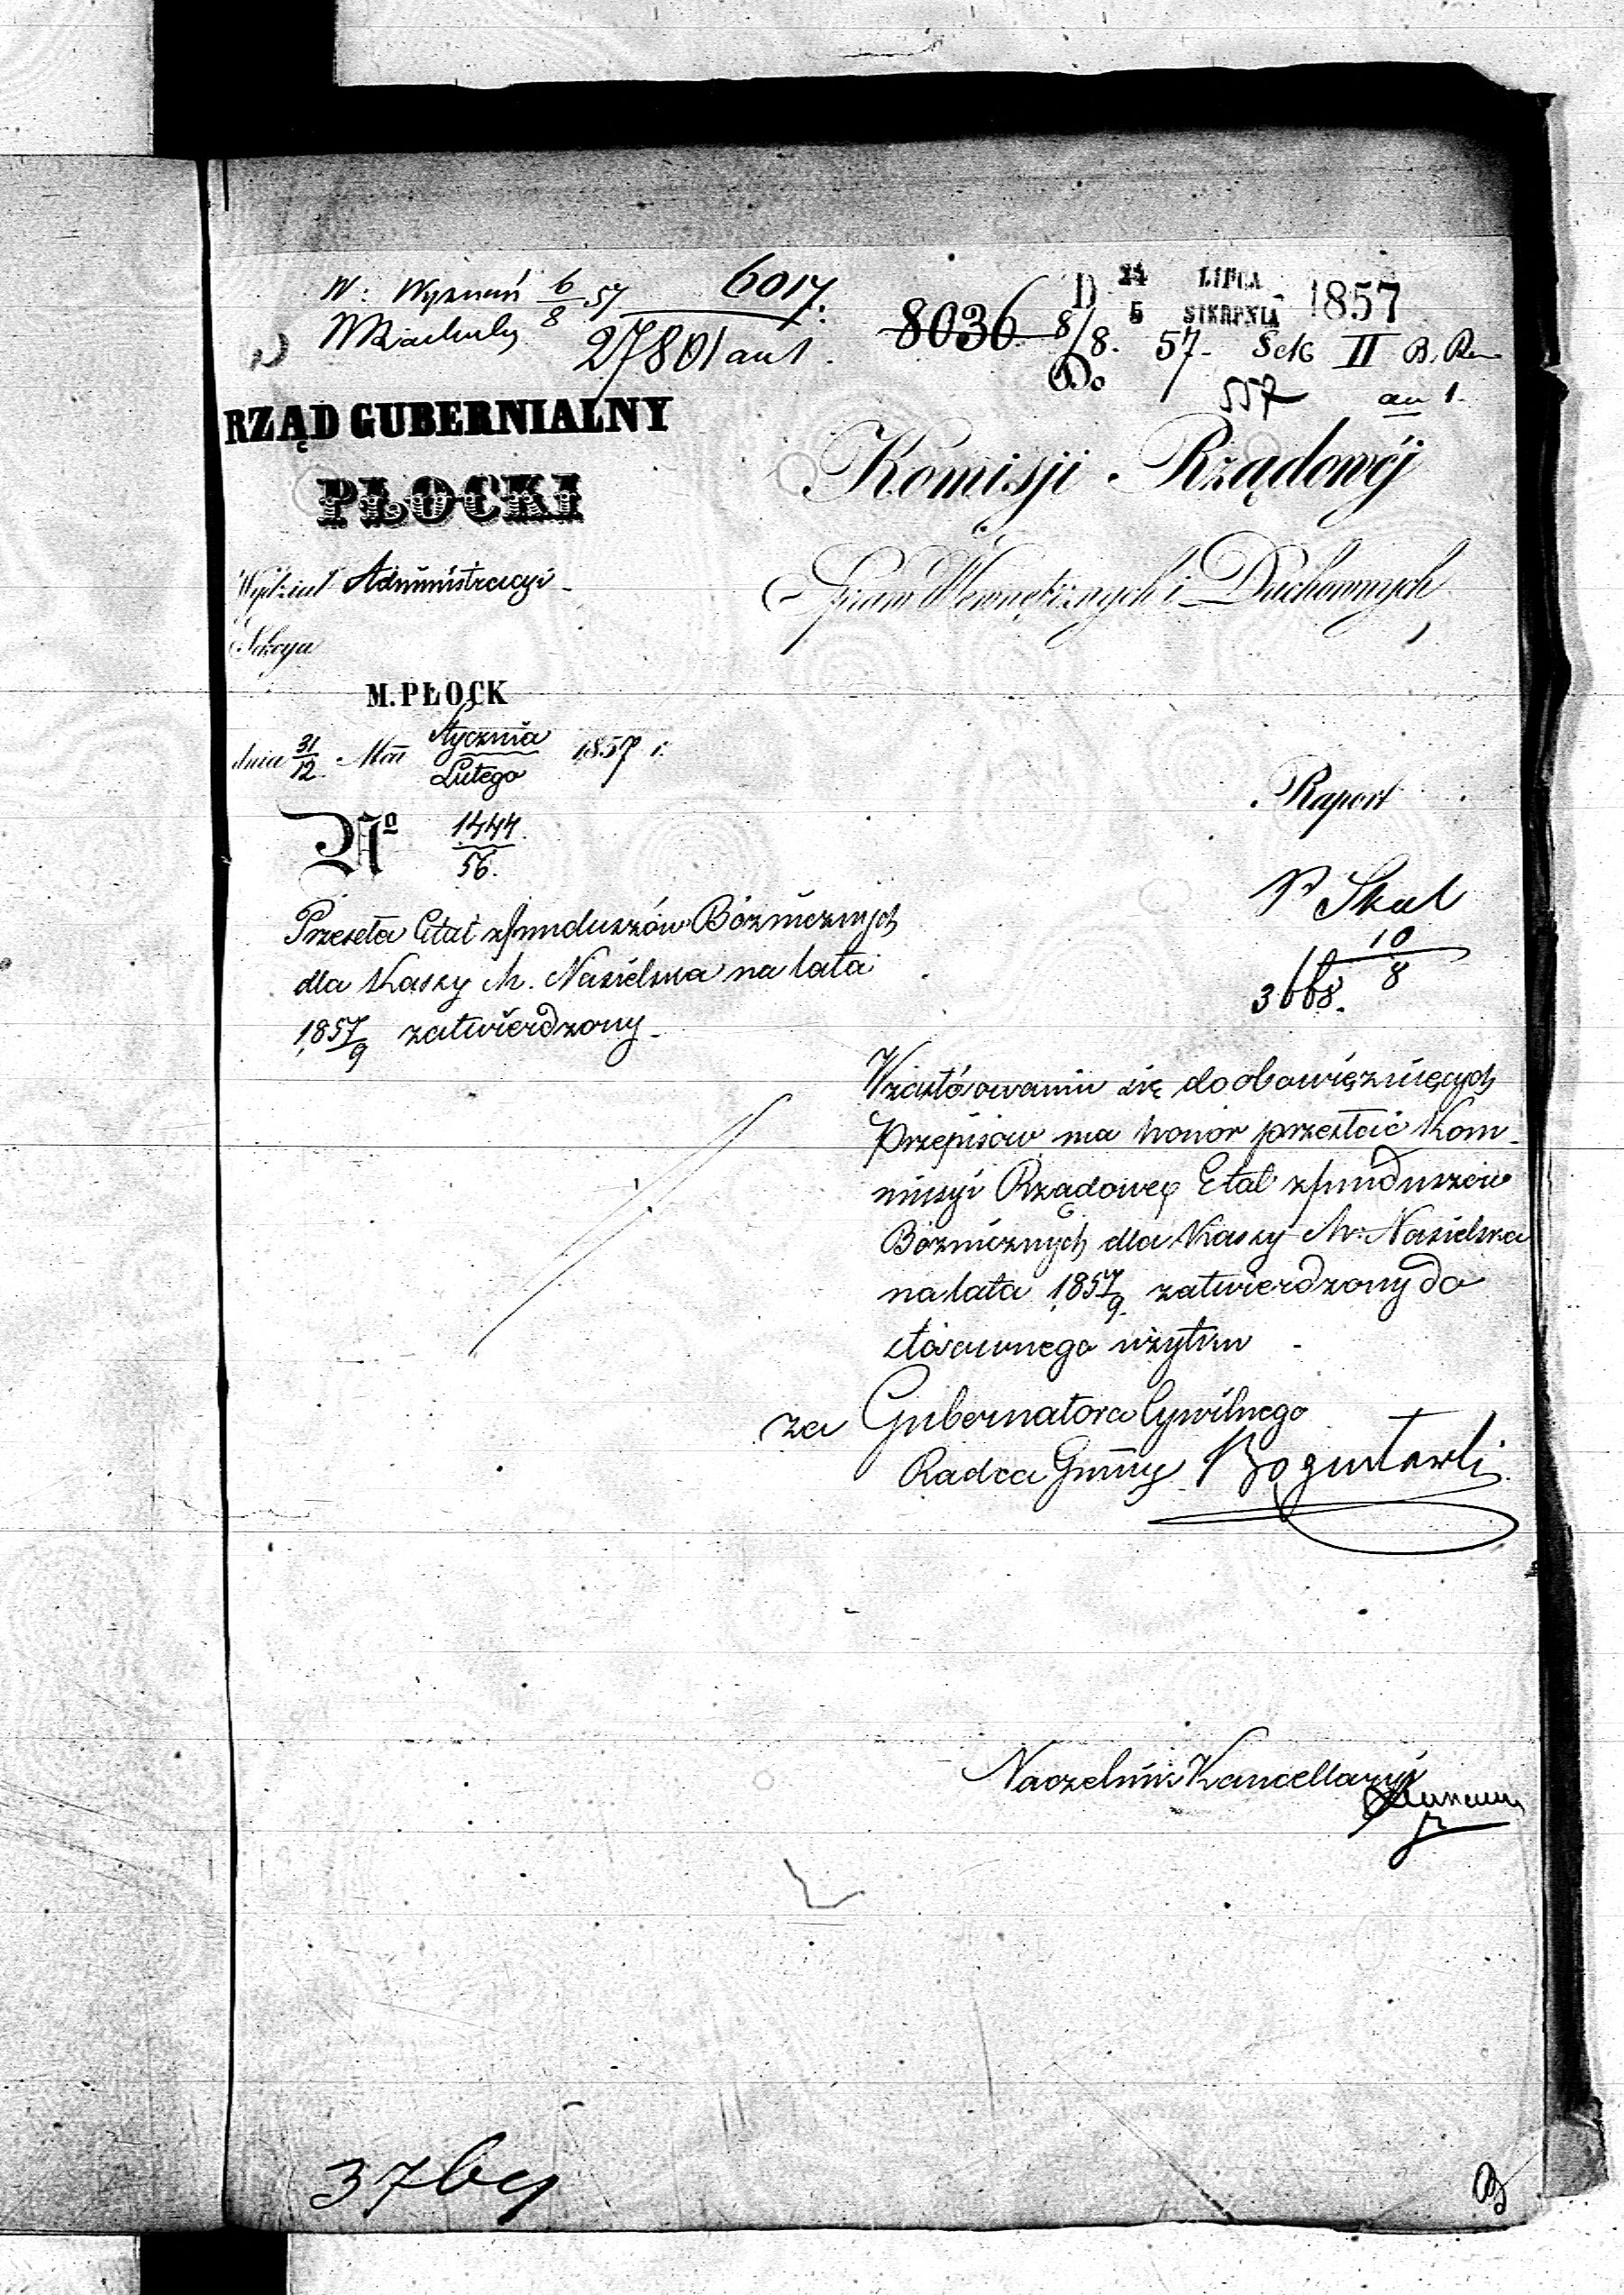 W: Wyznań 6/8 57 6017.
27801 an 1.
8036 8/8. 57 Sek II B. Ra
D 24 LIPCA
5 SIERPNIA 1857
Do 557 an 1.
RZĄD GUBERNIALNY
PŁOCKI
Wydział Administracyi
Sekcya
M. PŁOCK
dnia 31/12 Mca Stycznia/Lutego 1857 r.
No 1444/56.
Przeseła Etat z funduszów Bóżniczych
dla Kassy M. Nasielska na lata
1857/9 zatwierdzony
Komisji Rządowéj
Spraw Wewnętrznych i Duchownych
Raport
Skal
10/8
3668.
W zastósowaniu się do obowięzuięcych
Przepisow ma honor przesłać Kom-
missyi Rządowey Etat z funduszów
Bóżniczych dla Kassy M. Nasielska
na lata 1857/9 zatwierdzony do
stósownego użytku
za Gubernatora Cywilnego
Radca Gubny
Naczelnik Kancellaryi